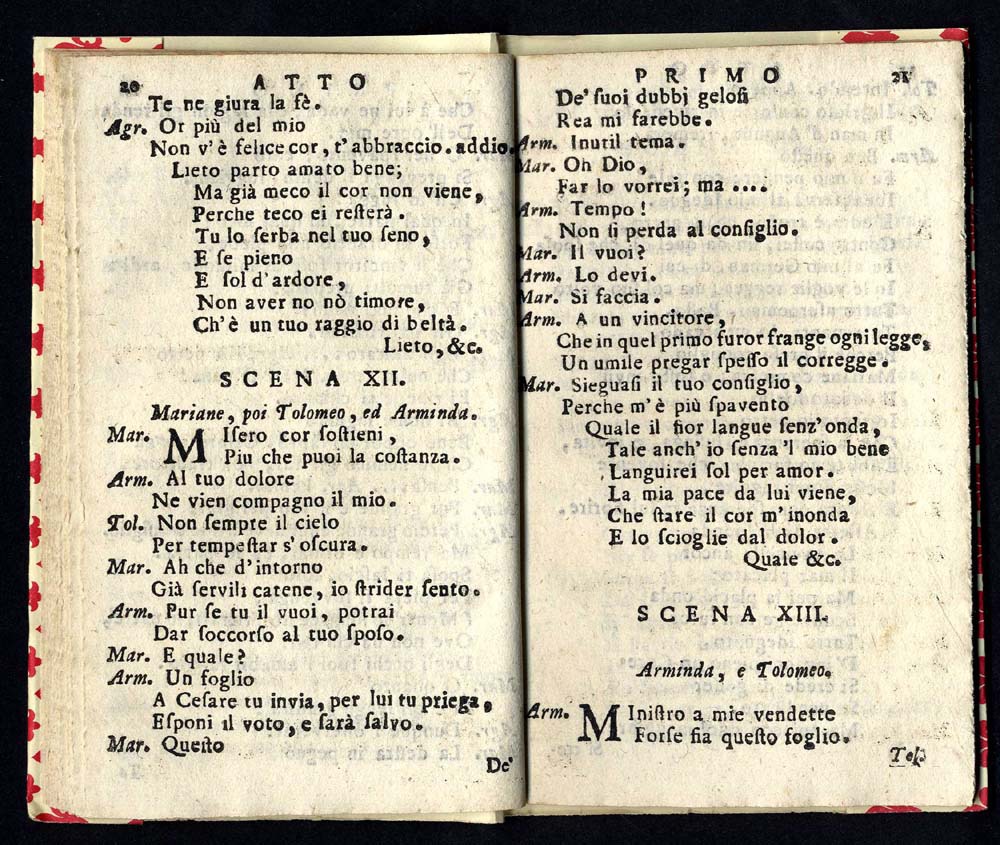 20 ATTO
Te ne giura la fè.
Agr. Or più del mio
Non v'è felice cor, t'abbraccio. addio.
Lieto parto amato bene;
Ma già meco il cor non viene,
Perche teco ei reſterà.
Tu lo ſerba nel tuo ſeno,
E ſe pieno
E ſol d'ardore,
Non aver no nò timore,
Ch'è un tuo raggio di beltà.
Lieto, &c.
SCENA XII.
Mariane, poi Tolomeo, ed Arminda.
Mar. MIſero cor ſoſtieni,
Piu che puoi la coſtanza.
Arm. Al tuo dolore
Ne vien compagno il mio.
Tol. Non ſempre il cielo
Per tempeſtar s'oſcura.
Mar. Ah che d'intorno
Già ſervili catene, io ſtrider ſento.
Arm. Pur ſe tu il vuoi, potrai
Dar ſoccorſo al tuo ſpoſo.
Mar. E quale?
Arm. Un foglio
A Ceſare tu invia, per lui tu priega,
Eſponi il voto, e ſarà ſalvo.
Mar. Queſto
De'
PRIMO 21
De' ſuoi dubbj geloſi
Rea mi farebbe.
Arm. Inutil tema.
Mar. Oh Dio,
Far lo vorrei; ma ....
Arm. Tempo!
Non ſi perda al conſiglio.
Mar. Il vuoi?
Arm. Lo devi.
Mar. Si faccia.
Arm. A un vincitore,
Che in quel primo furor frange ogni legge,
Un umile pregar ſpeſſo il corregge.
Mar. Sieguaſi il tuo conſiglio,
Perche m'è più ſpavento
Quale il fior langue ſenz'onda,
Tale anch'io ſenza 'l mio bene
Languirei ſol per amor.
La mia pace da lui viene,
Che ſtare il cor m'inonda
E lo ſcioglie dal dolor.
Quale &c.
SCENA XIII.
Arminda, e Tolomeo.
Arm. MIniſtro a mie vendette
Forſe fia queſto foglio.
Tol.